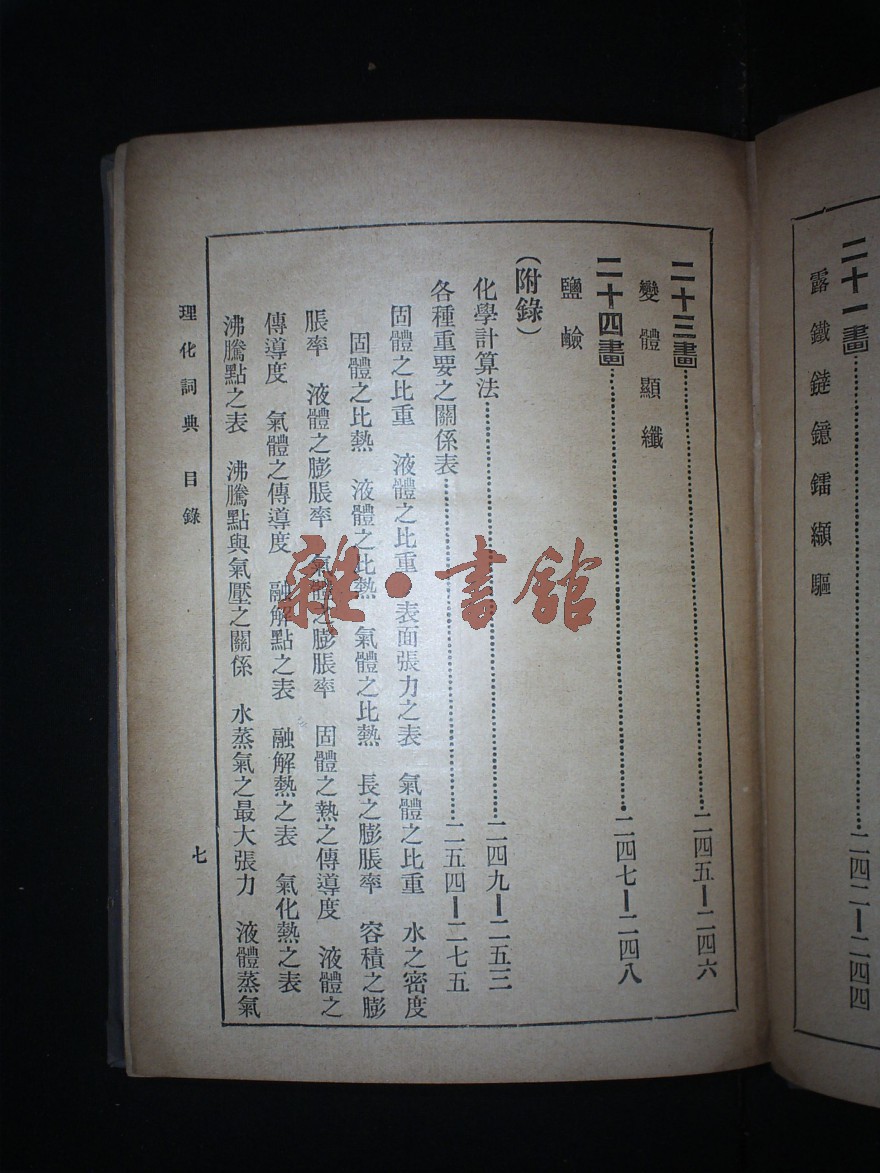 二十一畫……二四二—二四四
露鐵鐽鐿鐳纈驅
二十三畫……二四五—二四六
變體顯纖
二十四畫……二四七—二四八
鹽鹼
（附錄）
化學計算法……二四九—二五三
各種重要之關係表……二五四—二七五
固體之比重　液體之比重　表面張力之表　氣體之比重　水之密度
固體之比熱　液體之比熱　氣體之比熱　長之膨脹率　容積之膨
脹率　液體之膨脹率　氣體之膨脹率　固體之熱之傳導度　液體之
傳導度　氣體之傳導度　融解點之表　融解熱之表　氣化熱之表
沸騰點之表　沸騰點與氣壓之關係　水蒸氣之最大張力　液體蒸氣
理化詞典　目錄　七
雜·書館